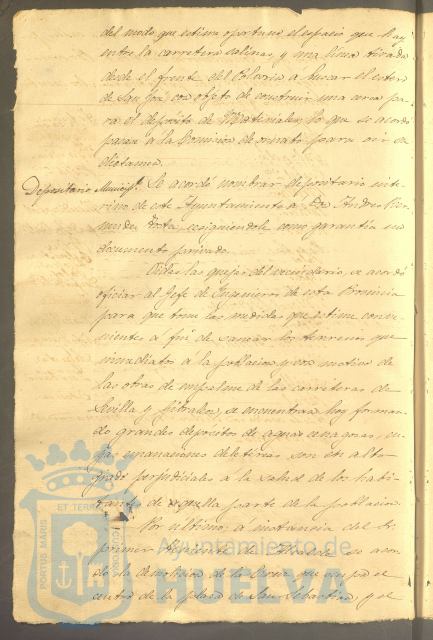 del modo que estime oportuno, el espacio que hay
entre la carretera salinas, y una linea tirada
desde el frente del Calvario a buscar el estero
de San José con objeto de construir una
ra el deposito de Materiales, lo que se acordó
pasar a la Comision de ornato para su
dictamen.
Depositario Municipl. Se acordó nombrar depositario inte-
rino de este Ayuntamiento á Don Andres Ber-
mudez exigiendole como garantia un
documento privado.
Oidas las quejas del vecindario, se acordó
oficiar al Jefe de Ingenieros de esta Provincia
para que tome las medidas que estime conve-
nientes á fin de sanear los terrenos que
inmediatos a la poblacion y con motivo de
las obras de empalme de las carreteras de
Sevilla y Gibraleon, se encuentran hoy forman-
do grandes depósitos de aguas cenagosas, cu-
yas emanaciones deletereas son en alto
grado perjudiciales á la salud de los habi-
tantes de aquella parte de la poblacion.
Por ultimo: a instancia del Sr.
primer Teniente de Alcalde se acor-
dó la demolicion de la que ocupa el
centro de la plaza de San Sebastian, y el
PORTUS MARIS
ET TERRE
CUSTODIA
Ayuntamiento de
HUELVA